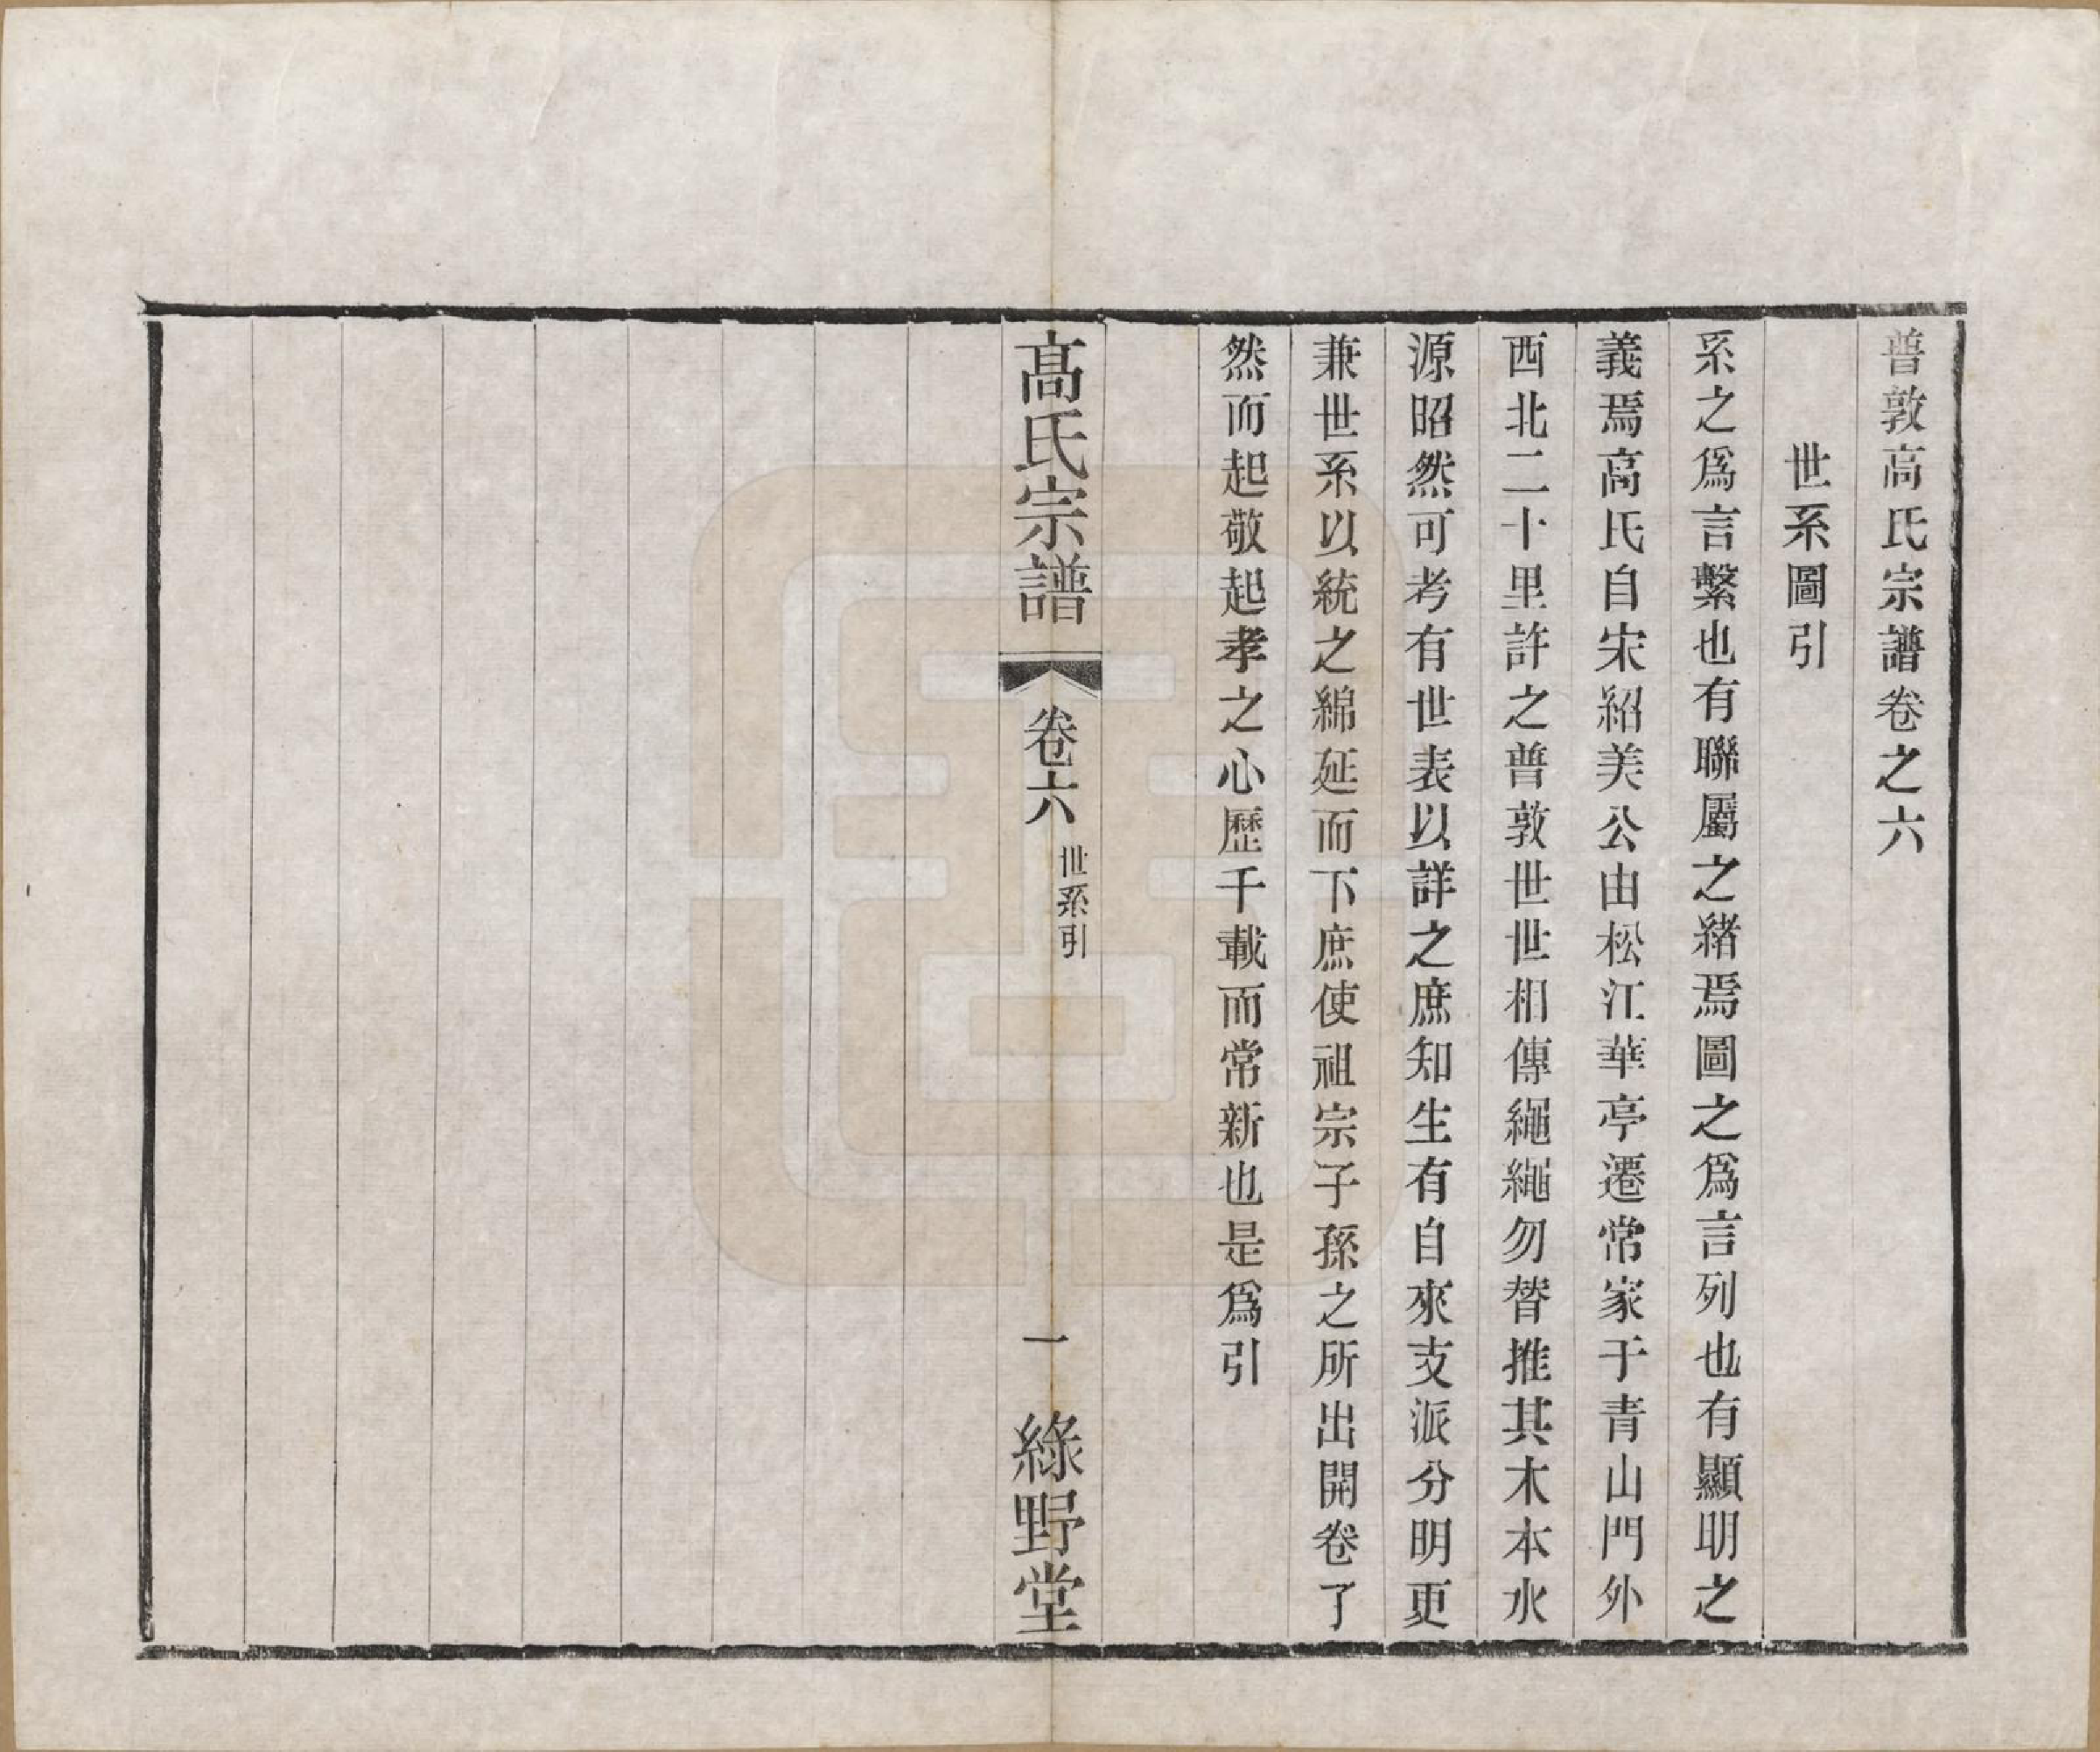 普敦高氏宗譜卷之六
世系圖引
系之爲言繫也有聯屬之緒焉圖之爲言列也有顯明之
義焉高氏自宋紹美公由松江華亭遷常家于青山門外
西北二十里許之普敦世世相傳繩繩勿替推其木本水
源昭然可考有世表以詳之庶知生有自來支派分明更
兼世系以統之綿延而下庶使祖宗子孫之所出開卷了
然而起敬起孝之心歷千載而常新也是爲引
髙氏宗譜
卷六
世系引
一
綠野堂